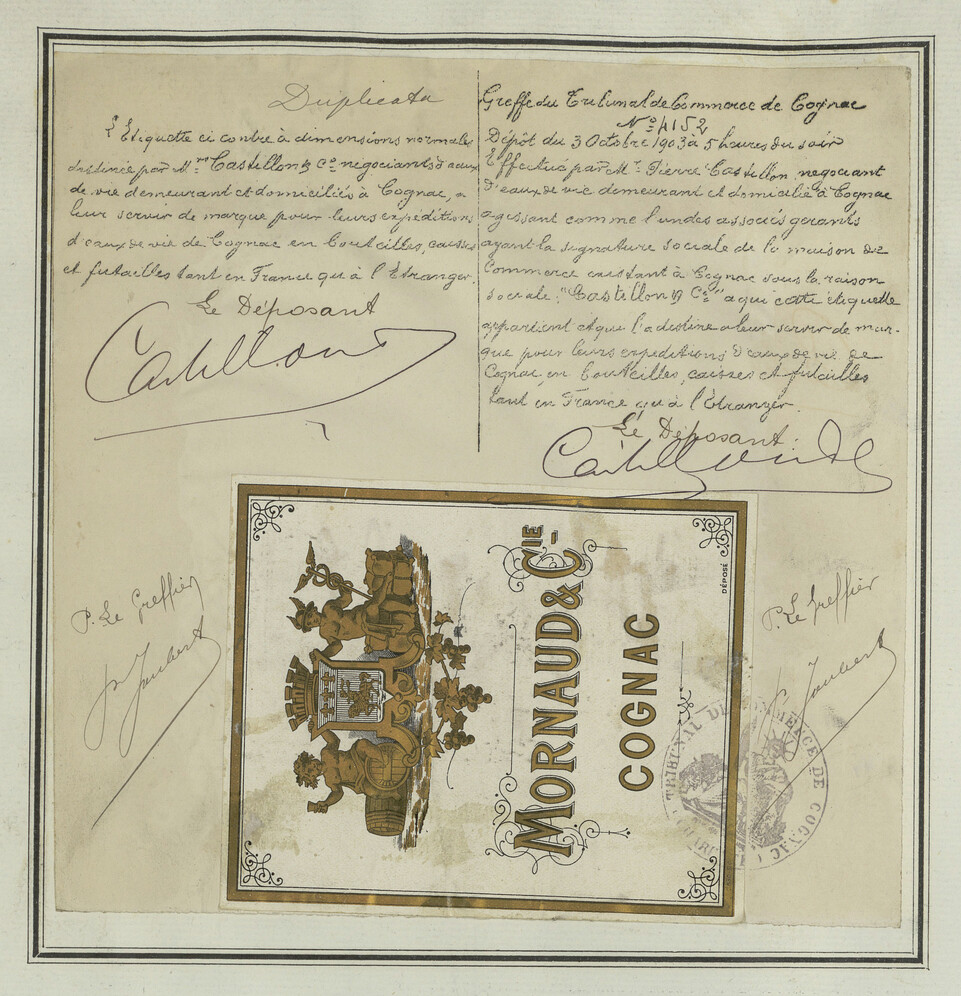 Duplicata
L'Etiquette ci contre à dimensions normales
destinée par M.rs Castillon & Cº negociants d'eaux
de vie demeurant et domiciliés à Cognac, a
leur servir de marque pour leurs expeditions
d'eaux de vie de Cognac en bouteilles, caisses
et futailles tant en France qu'à l'Etranger.
Le Déposant
Castillon
Greffe du Tribunal de Commerce de Cognac
Nº 4152
Dépôt du 3 Octobre 1903 à 5 heures du soir
Effectué par M.r Pierre Castillon, negociant
d'eaux de vie demeurant et domicilié à Cognac
agissant comme l'un des associés gerants
ayant la signature sociale de la maison de
Commerce existant à Cognac sous la raison
sociale: "Castillon & Cie" a qui cette étiquette
appartient et qui l'a destine a leur servir de mar-
que pour leurs expeditions d'eaux de vie de
Cognac, en bouteilles, caisses et futailles
tant en France qu'à l'Etranger.
Le Déposant
Castillon
P. Le Greffier
Joubert
MORNAUD & CIE
COGNAC
DÉPOSÉ
P. Le Greffier
Joubert
TRIBUNAL DE COMMERCE DE COGNAC